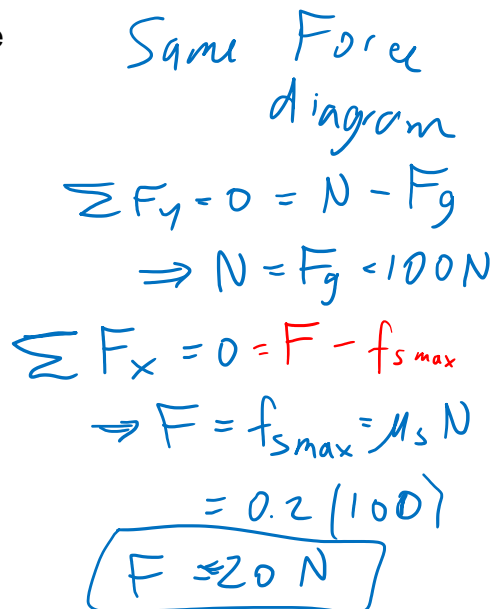 e
Same Force
diagram
ΣF_y = 0 = N - F_g
⇒ N = F_g = 100N
ΣF_x = 0 = F - f_s max
⇒ F = f_s max = μ_s N
= 0.2 (100)
F = 20 N